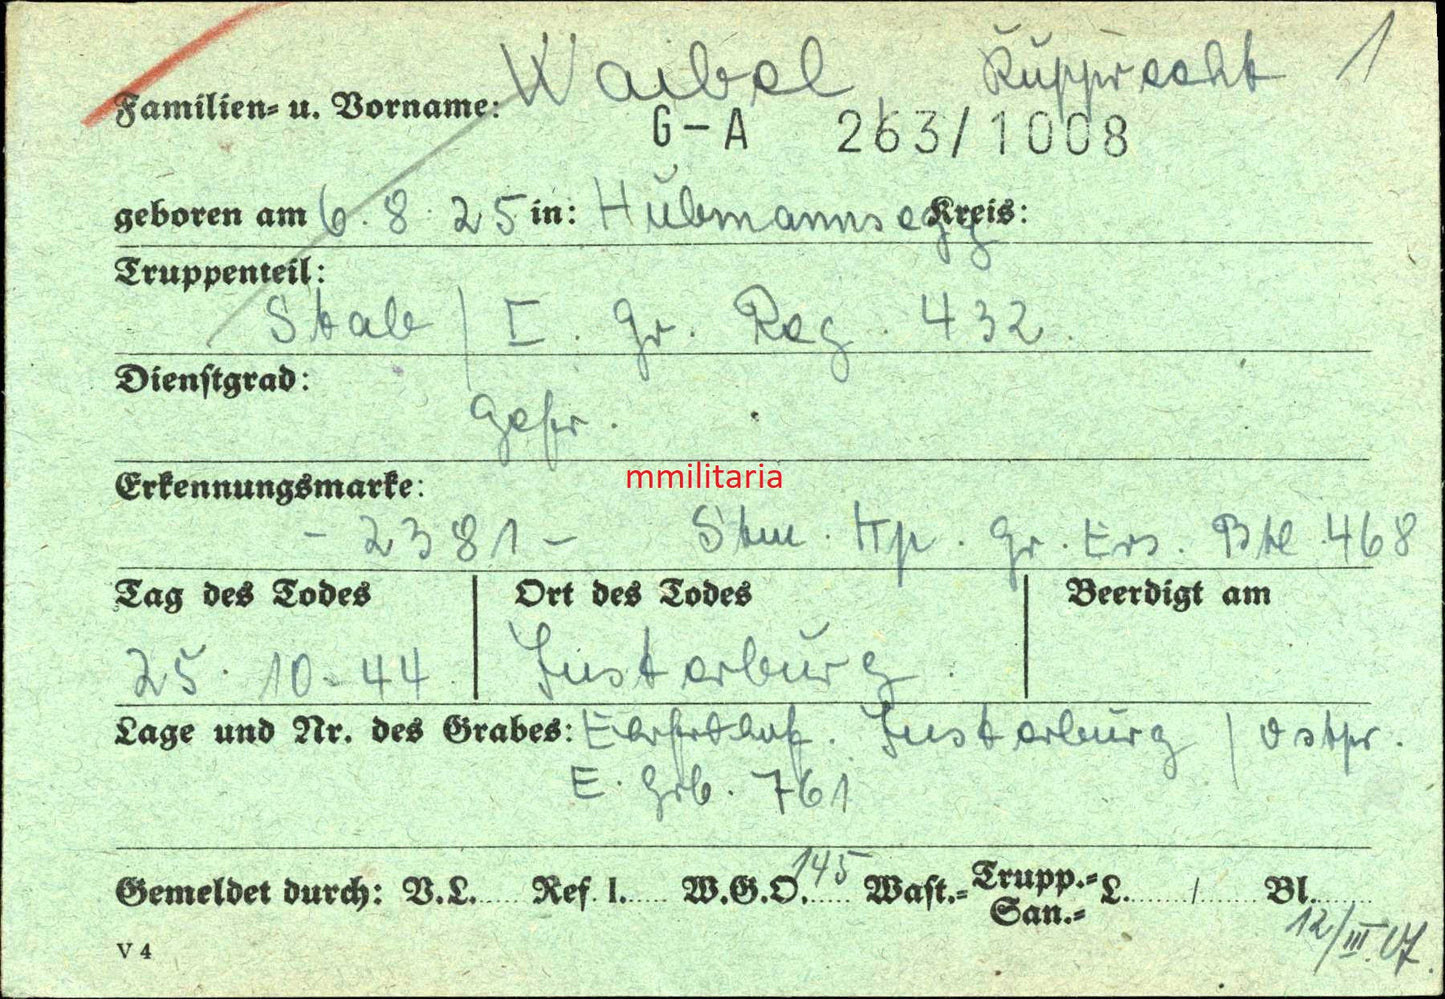 Familien- u. Vorname: Waibel Rupprecht 1
G-A 263/1008
geboren am 6. 8. 25 in: Hubmannsegg Kreis:
Truppenteil:
Stab / I. Gr. Reg. 432.
Dienstgrad:
Gefr.
mmilitaria
Erkennungsmarke:
- 2381 - Stm. Kp. Gr. Ers. Btl. 468
Tag des Todes Ort des Todes Beerdigt am
25. 10. 44 Insterburg.
Lage und Nr. des Grabes: Insterburg / Ostpr.
E. Grb. 761
Gemeldet durch: V.L. Ref. I. W.G.O. 145 Wast.- Trupp.- San.- L. / Bl.
12/III.
V 4